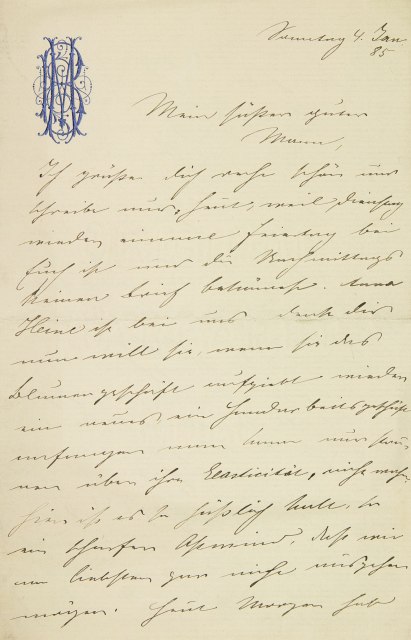 Sonntag 4. Jan.
85
Mein süßer guter
Mann,
Ich grüße dich recht schön und
schreibe nur heut, weil Dienstag
wieder einmal Feiertag bei
Euch ist und du Nachmittags
keinen Brief bekömmst. Anna
Heine ist bei uns denke dir
nun will sie, wenn sie das
Blumengeschäft aufgiebt wieder
ein neues, ein Handarbeitsgeschäft
anfangen man kann nur stau-
nen über ihre Elasticität, nicht wahr
hier ist es so häßlich kalt, so
ein scharfer Ostwind, daß wir
am liebsten gar nicht ausgehen
mögen. Heut Morgen hab